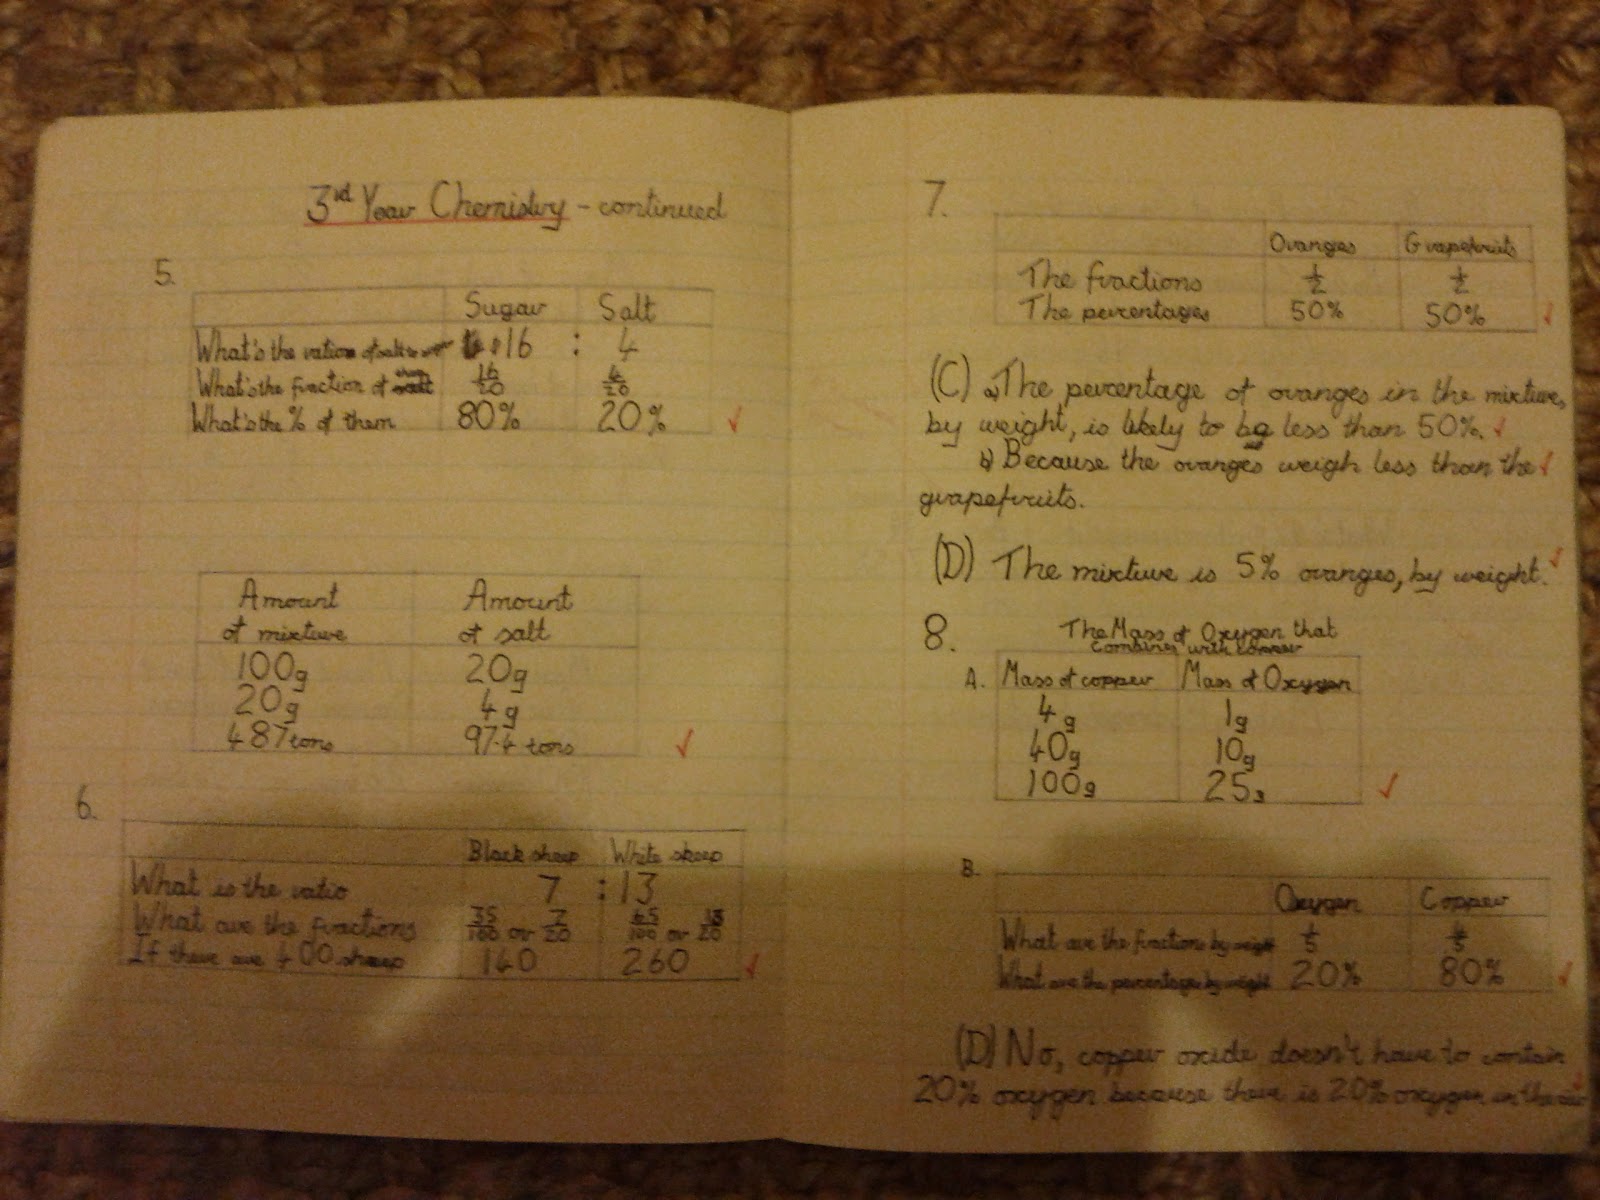 3rd Year Chemistry - continued
5.
Sugar Salt
What's the ratio of salt to sugar 16 : 4
What's the fraction of them 16/20 4/20
What's the % of them 80% 20%
Amount Amount
of mixture of salt
100g 20g
20g 4g
487 tons 97.4 tons
6.
Black sheep White sheep
What is the ratio 7 : 13
What are the fractions 35/100 or 7/20 65/100 or 13/20
If there are 400 sheep 140 260
7.
Oranges Grapefruits
The fractions 1/2 1/2
The percentages 50% 50%
(C) a) The percentage of oranges in the mixture,
by weight, is likely to be less than 50%.
b) Because the oranges weigh less than the
grapefruits.
(D) The mixture is 5% oranges, by weight.
8. The Mass of Oxygen that
combines with copper
A. Mass of copper Mass of Oxygen
4g 1g
40g 10g
100g 25g
B.
Oxygen Copper
What are the fractions by weight 1/5 4/5
What are the percentages by weight 20% 80%
(D) No, copper oxide doesn't have to contain
20% oxygen because there is 20% oxygen in the air